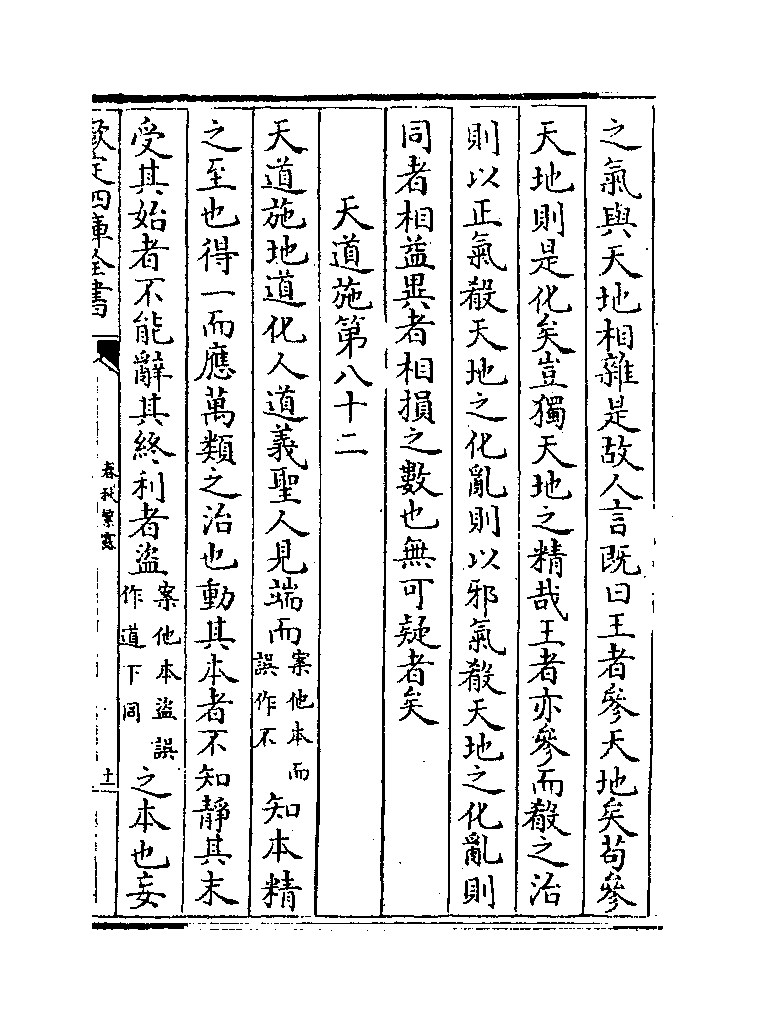 之氣與天地相雜是故人言既曰王者參天地矣苟參
天地則是化矣豈獨天地之精哉王者亦參而殽之治
則以正氣殽天地之化亂則以邪氣殽天地之化亂則
同者相益異者相損之數也無可疑者矣
天道施第八十二
天道施地道化人道義聖人見端而案他本而誤作不知本精
之至也得一而應萬類之治也動其本者不知靜其末
受其始者不能辭其終利者盜案他本盜誤作道下同之本也妄
欽定四庫全書
春秋繁露
十一